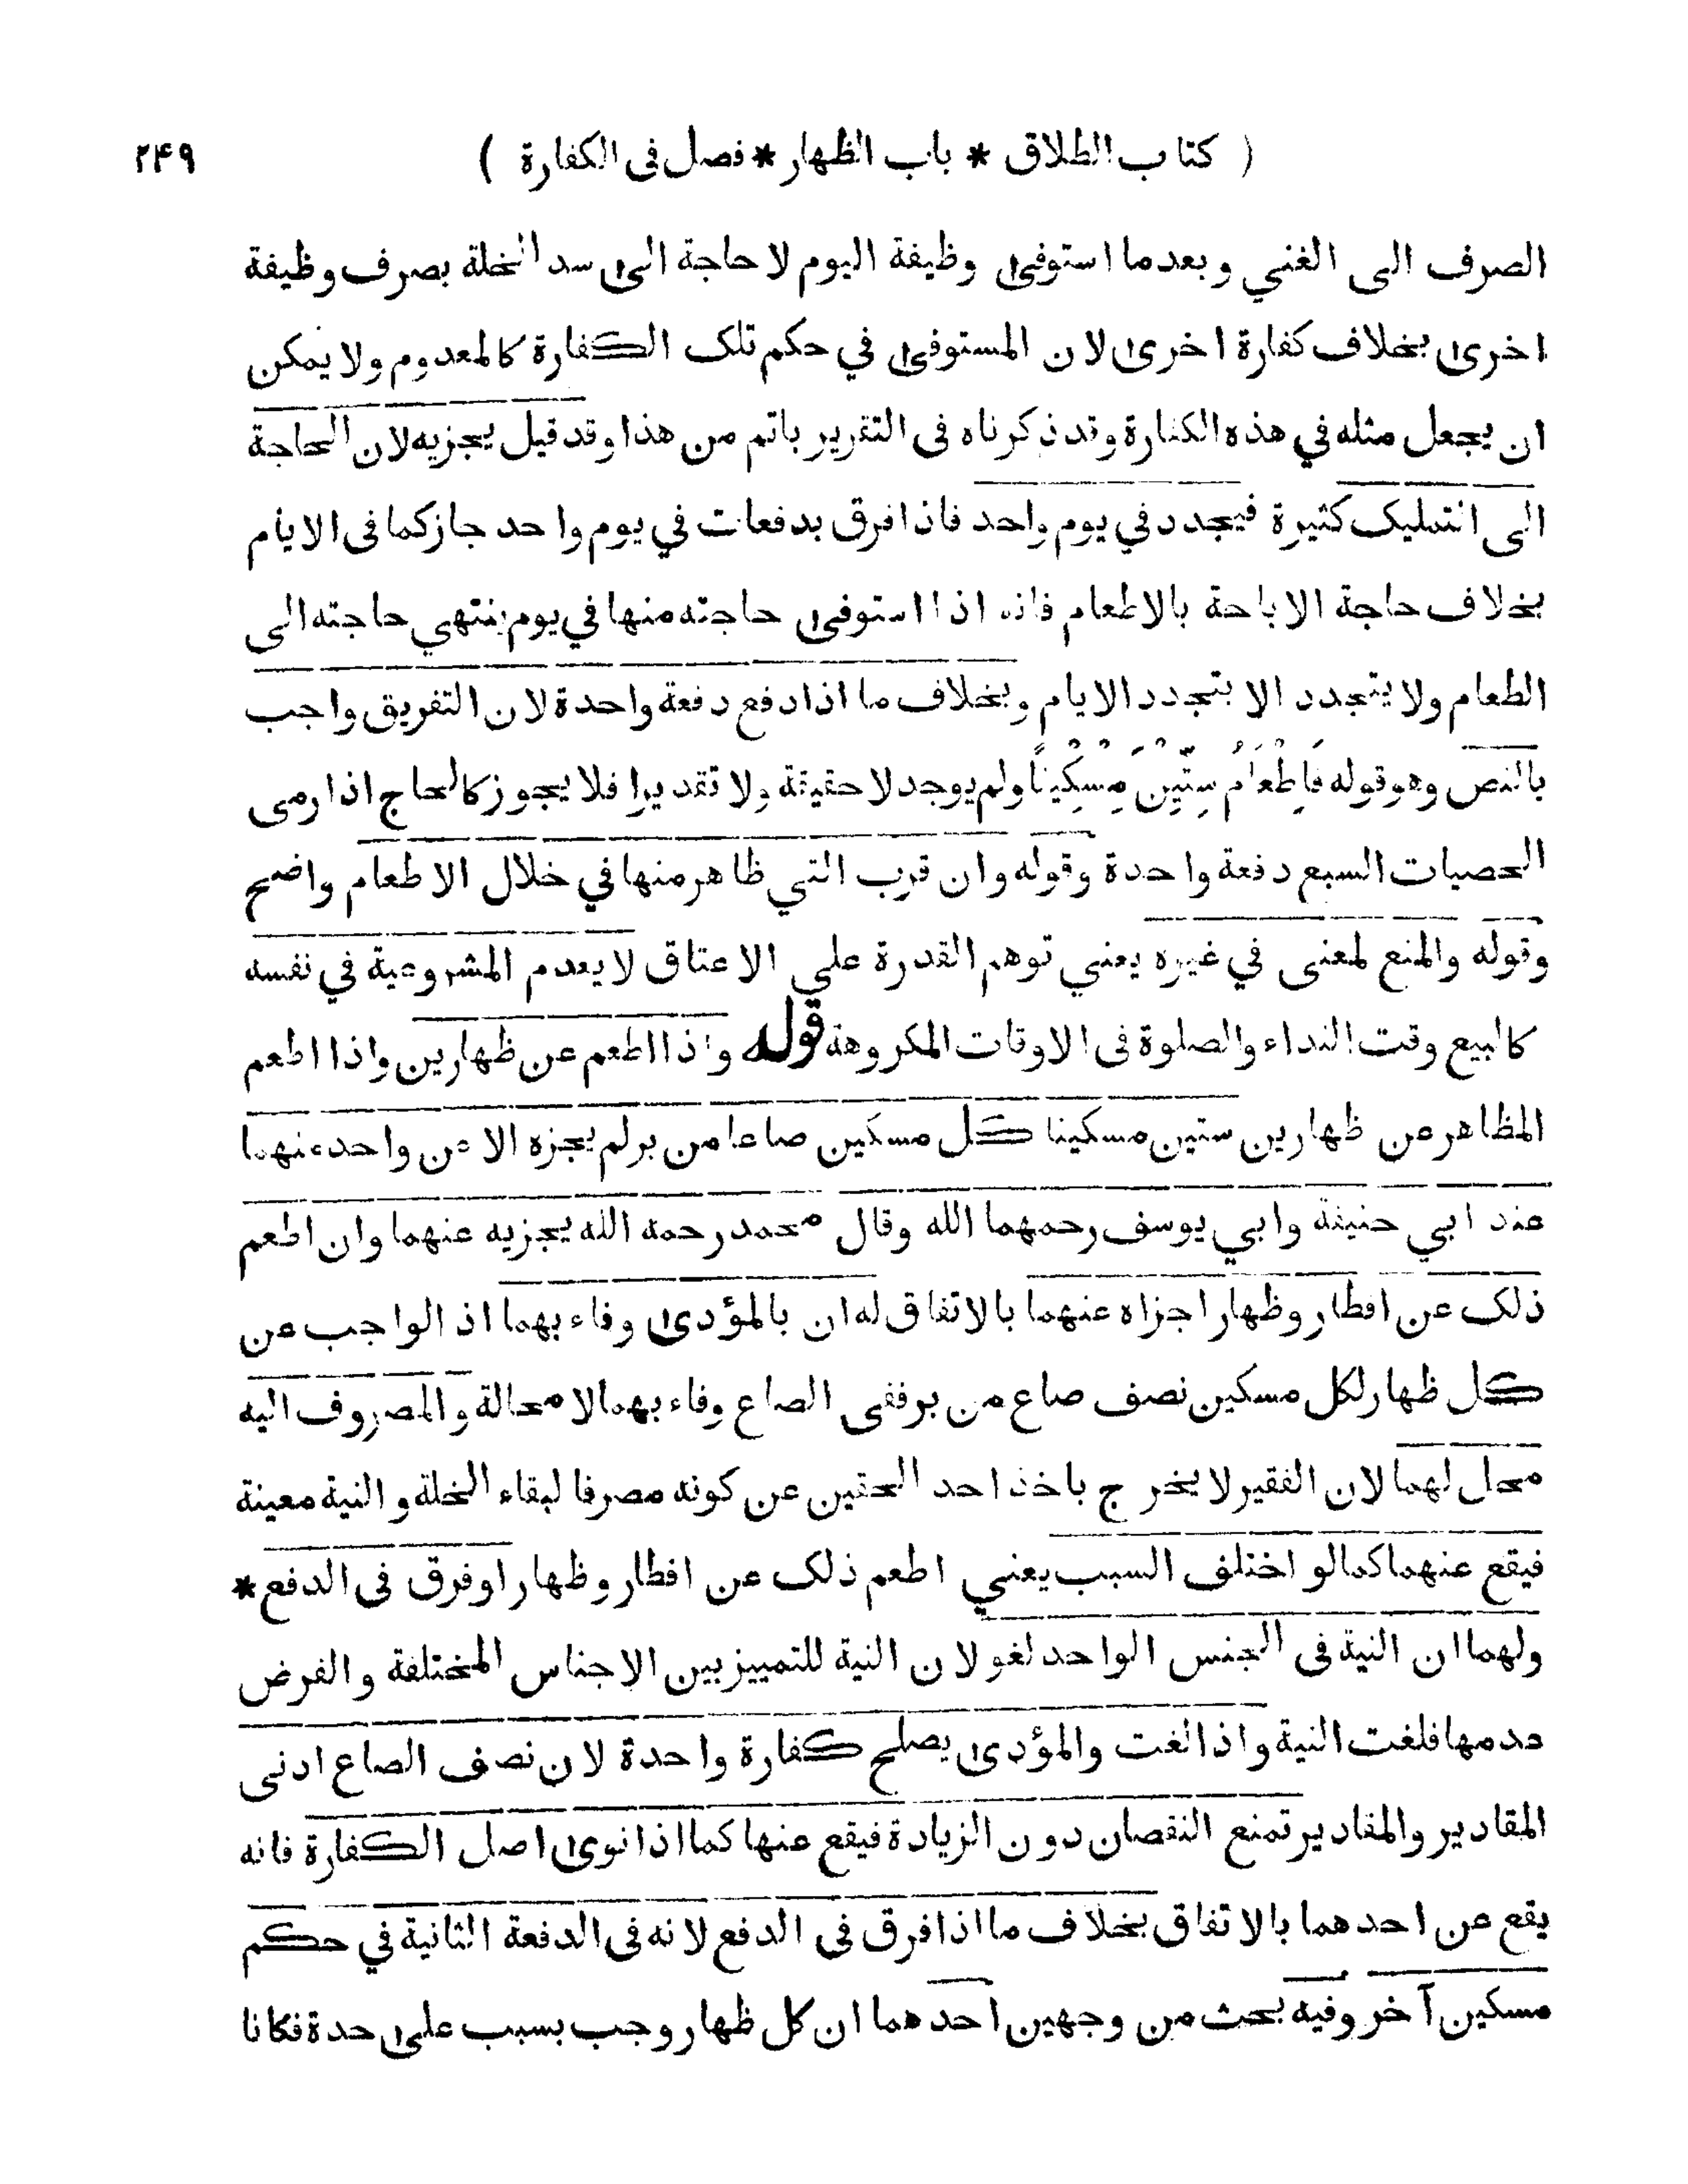 ( كتاب الطلاق * باب الظهار * فصل فى الكفارة ) ۲۴۹
الصرف الى الغني وبعد ما استوفى وظيفة اليوم لا حاجة الى سد الخلة بصرف وظيفة
اخرى بخلاف كفارة اخرى لان المستوفى في حكم تلك الكفارة كالمعدوم ولا يمكن
ان يجعل مثله في هذه الكفارة وقد ذكرناه فى التقرير باتم من هذا وقد قيل يجزيه لان الحاجة
الى التمليك كثيرة فيجدد في يوم واحد فاذا فرق بدفعات في يوم واحد جاز كما فى الايام
بخلاف حاجة الاباحة بالاطعام فانه اذا استوفى حاجته منها في يوم ينتهي حاجته الى
الطعام ولا يتجدد الا بتجدد الايام وبخلاف ما اذا دفع دفعة واحدة لان التفريق واجب
بالنص وهو قوله فَاِطْعَامُ سِتِّيْنَ مِسْكِيْناً ولم يوجد لا حقيقة ولا تقديرا فلا يجوز كالحاج اذا رمى
الحصيات السبع دفعة واحدة وقوله وان قرب التي ظاهر منها في خلال الاطعام واضح
وقوله والمنع لمعنى في غيره يعني توهم القدرة على الاعتاق لا يعدم المشروعية في نفسه
كالبيع وقت النداء والصلوة فى الاوقات المكروهة قوله واذا اطعم عن ظهارين واذا اطعم
المظاهر عن ظهارين ستين مسكينا كل مسكين صاعا من بر لم يجزه الا عن واحد منهما
عند ابي حنيفة وابي يوسف رحمهما الله وقال محمد رحمه الله يجزيه عنهما وان اطعم
ذلك عن افطار وظهار اجزاه عنهما بالاتفاق له ان بالمؤدى وفاء بهما اذ الواجب عن
كل ظهار لكل مسكين نصف صاع من بر ففى الصاع وفاء بهما لا محالة والمصروف اليه
محل لهما لان الفقير لا يخرج باخذ احد الحقين عن كونه مصرفا لبقاء الخلة والنية معينة
فيقع عنهما كما لو اختلف السبب يعني اطعم ذلك عن افطار وظهار او فرق فى الدفع *
ولهما ان النية فى الجنس الواحد لغو لان النية للتمييز بين الاجناس المختلفة والفرض
عدمها فلغت النية واذا لغت والمؤدى يصلح كفارة واحدة لان نصف الصاع ادنى
المقادير والمقادير تمنع النقصان دون الزيادة فيقع عنها كما اذا نوى اصل الكفارة فانه
يقع عن احدهما بالاتفاق بخلاف ما اذا فرق فى الدفع لانه فى الدفعة الثانية في حكم
مسكين آخر وفيه بحث من وجهين احدهما ان كل ظهار وجب بسبب على حدة فكانا